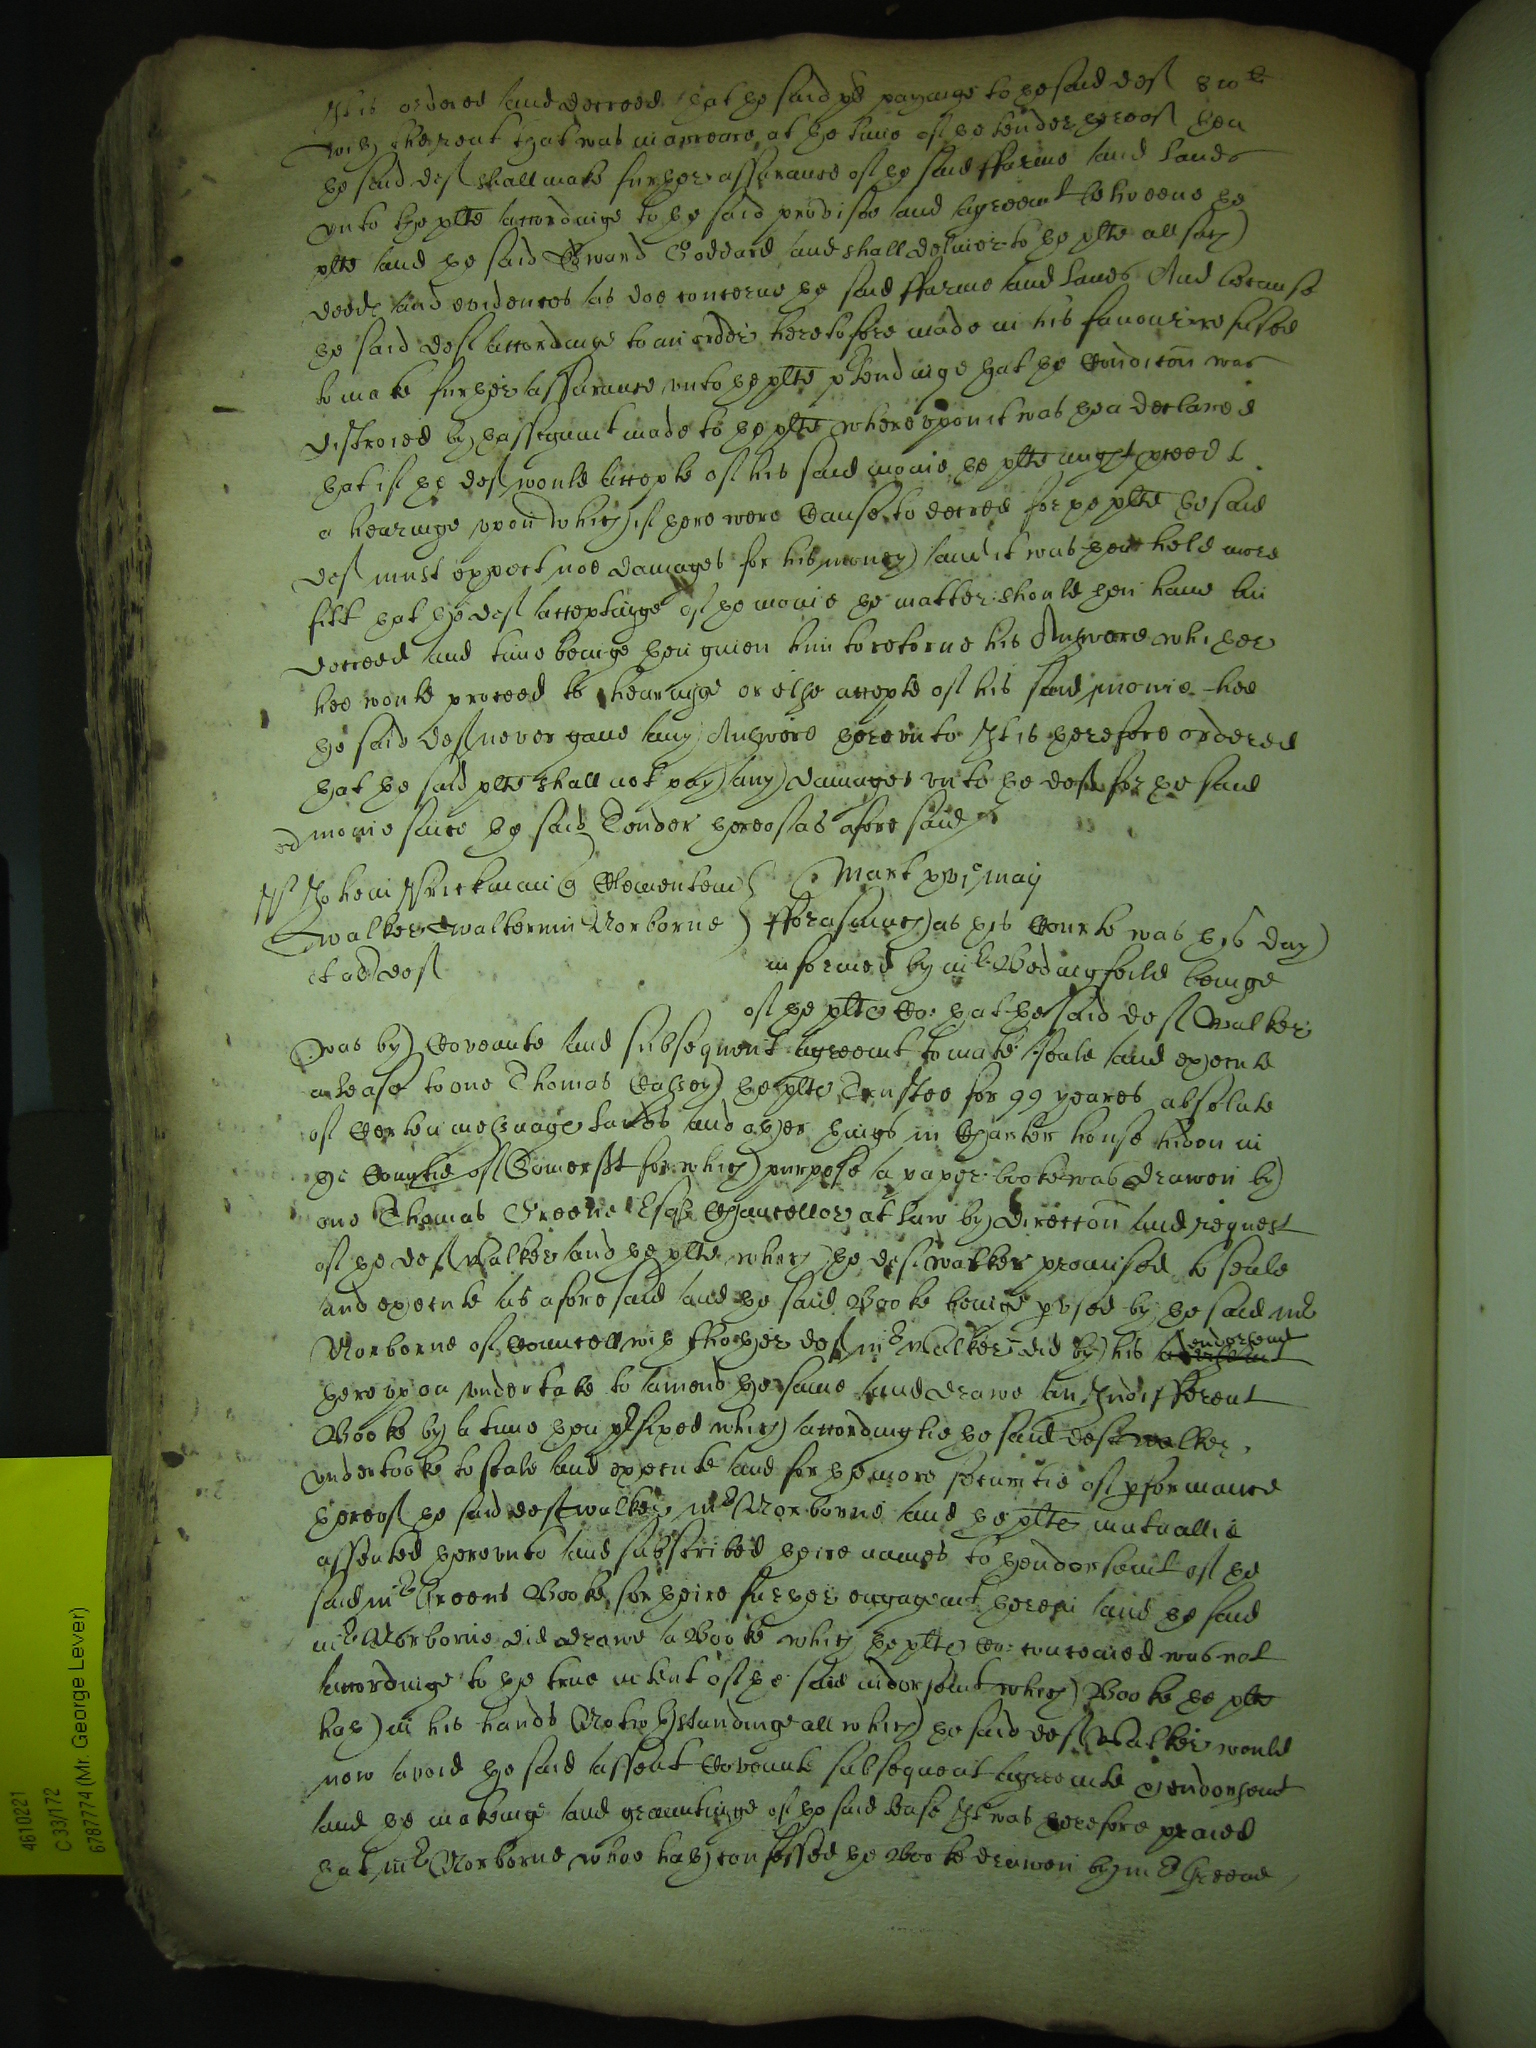 It is ordered and decreed that the said plt payinge to the said deft 810li
with the rent that was in arreare at the time of the tender thereof then
the said deft shall make further assurance of the said ffarme and lands
vnto the plte accordinge to the said proviso and agreemt betweene the
plte and the said Edward Goddard and shall deliver to the plte all such
deeds and evidences as doe concerne the said ffarme and lands And because
the said deft accordinge to an order heretofore made in his favour refused
to make further assurance vnto the plte ptendinge that the Condicon was
distroied by thassignmt made to the plte whereupon it was then declared
that if the deft would accepte of his said monie the plte might pceed t
a hearinge vpon which if there were Cause to decree for the plte the said
deft must expect noe damages for his money and it was then held more
fitt that the deft acceptinge of the monie the matter should then have bin
decreed and time beinge then given him to retorne his Answere whether
hee would proceed to hearinge or else accepte of his said monie hee
the said deft never gave any Answere therevnto It is therefore ordered
that the said plte shall not pay any damages vnto the deft for the said
ed monie since the said Tender thereof as aforesaid
Johem Strickman q Clementem
Walker Walterum Norborne
et ad deft
Mart xvi May
fforasmuch as this Courte was this day
informed by mr Bedingfeild beinge
of the pltes Co: that the said deft Walker
was by Coveante and subsequent agreemt to make seale and execute
a lease to one Thomas Cassey the pltes Trustee for 99 yeares absolute
of Certen messuage lands and other things in Charter house hidon in
the Countie of Somersett for which purpose a paper booke was drawen by
one Thomas Greene Esqr Chauncellor at law by direccon and request
of the deft Walker and the plte which the deft Walker promised to seale
and execute as aforesaid and the said Booke beinge pvsed by the said mr
Norborne of Councell with thother deft mr Walker did by his endorsemt
therevpon vndertake to amend the same and drawe an Indifferent
Booke by a time then pfixed which accordinglie the said deft Walker
vndertooke to seale and execute and for the more securitie of pformance
thereof the said deft Walker mr Norborne and the plte mutuallie
assented therevnto and subscribed theire names to thendorsemt of the
said mr Greens Booke for theire further engagemt therein and the said
mr Norborne did drawe a Booke which the pltes Co: conceived was not
accordinge to the true intent of the said indorsemt which Booke the plte
hath in his hands Notwthstandinge all which the said deft Walker would
now avoid the said assent Coveante subsequent agreemte thendorsemt
and the makeinge and grauntinge of the said lease It was therefore praied
that mr Norborne whoe hath confessed the Booke drawen by mr Greene
4610221
C 33/172
6787774 (Mr. George Lever)